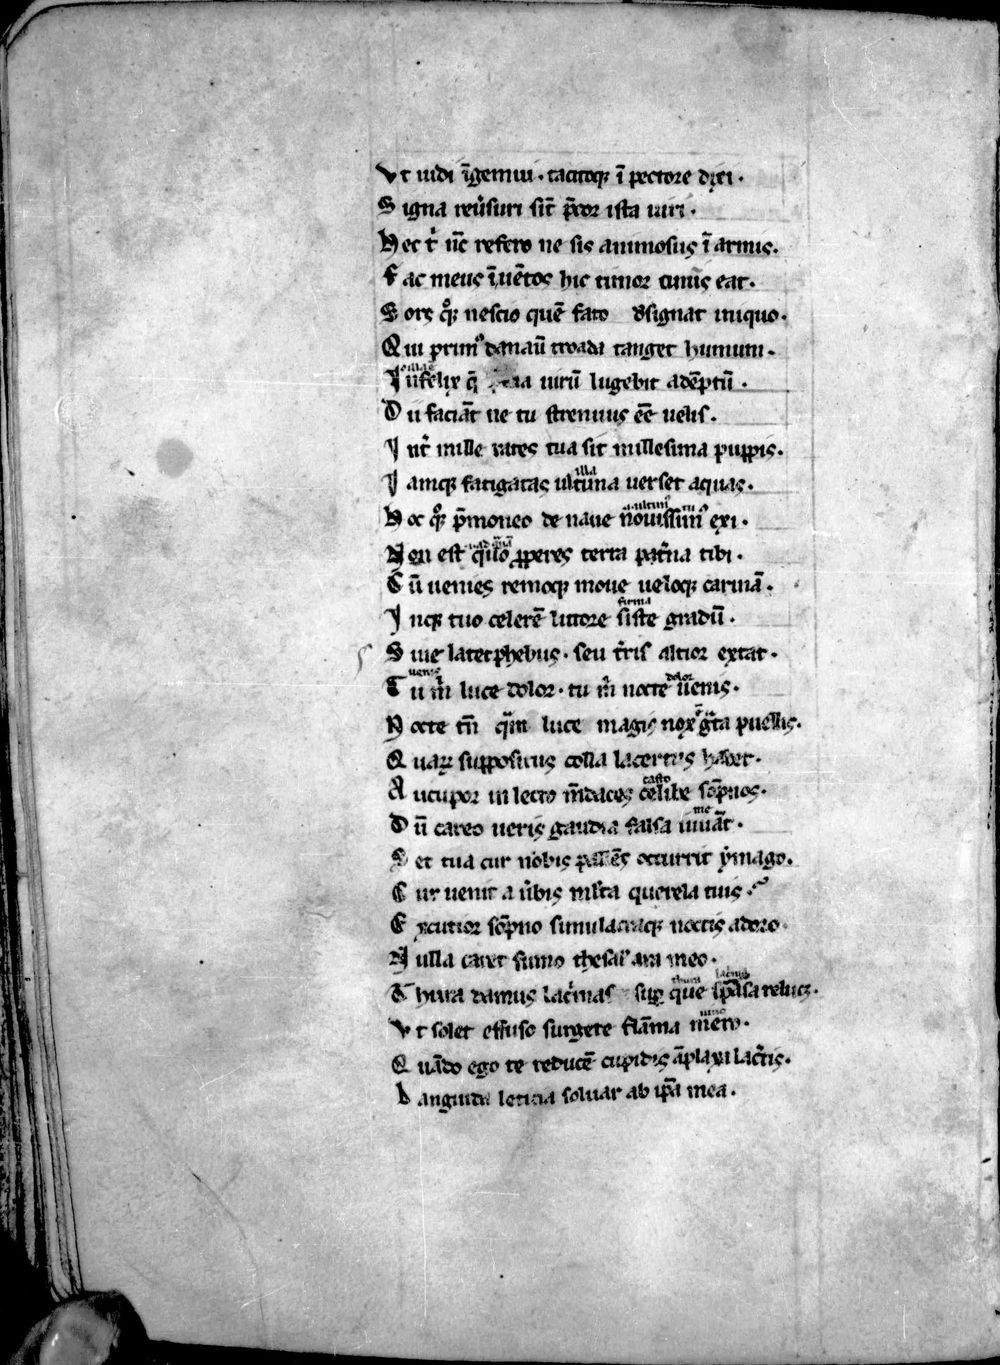 Vt uidi īgemui · tacitoqꝫ ī pectore dixi ·
Signa reu̾suri sīt p̄cor ista uiri ·
Hec t̾ nūc refero ne sis animosus ī armis ·
Fac meus ī uētos hic timor omnis eat ·
Sors qͦꝫ nescio quē fato dsignat iniquo ·
Qui primꝰ danaū troada tanget humum ·
Infelix q̄ uirū lugebit adēptū ·
Dii faciāt ne tu strenuus ēē uelis ·
Int̾ mille rates tua sit millesima puppis ·
illa
Iamqꝫ fatigatas ultima uerset aquas ·
Hoc qͦꝫ p̄moneo de naue nouissimꝰ exi ·
Non est quo ꝓperes terra pat̾na tibi ·
Cū uenies remoqꝫ moue ueloqꝫ carinā ·
firma
Inqꝫ tuo celerē littore siste gradū ·
Siue latet phebus · seu t̾ris altior extat ·
uenis dolor
Tu m̄ luce dolor · tu m̄ nocte uenis ·
Nocte tn̄ qᵃm luce magis nox gᵃta puellis ·
Quaꝝ suppositus colla lacertus habet ·
casto
Aucupor in lecto m̄daces celibe sōpnos ·
me
Dū careo ueris gaudia falsa iuuāt ·
Set tua cur nobis pallēs occurrit ymago ·
Cur uenit a u̾bis ml̄ta querela tuis ·
Excutior sōpno simulacraqꝫ noctis adoro ·
Nulla caret fumo thesal' ara meo ·
thura lacrimis
Thura damus lac̾mas suꝑ que sp̄asa relucꝫ ·
uino
Vt solet effuso surgere flāma mero ·
Quādo ego te reducē cupidis āplexa lac̾tis ·
Languida leticia soluar ab ip̄a mea ·